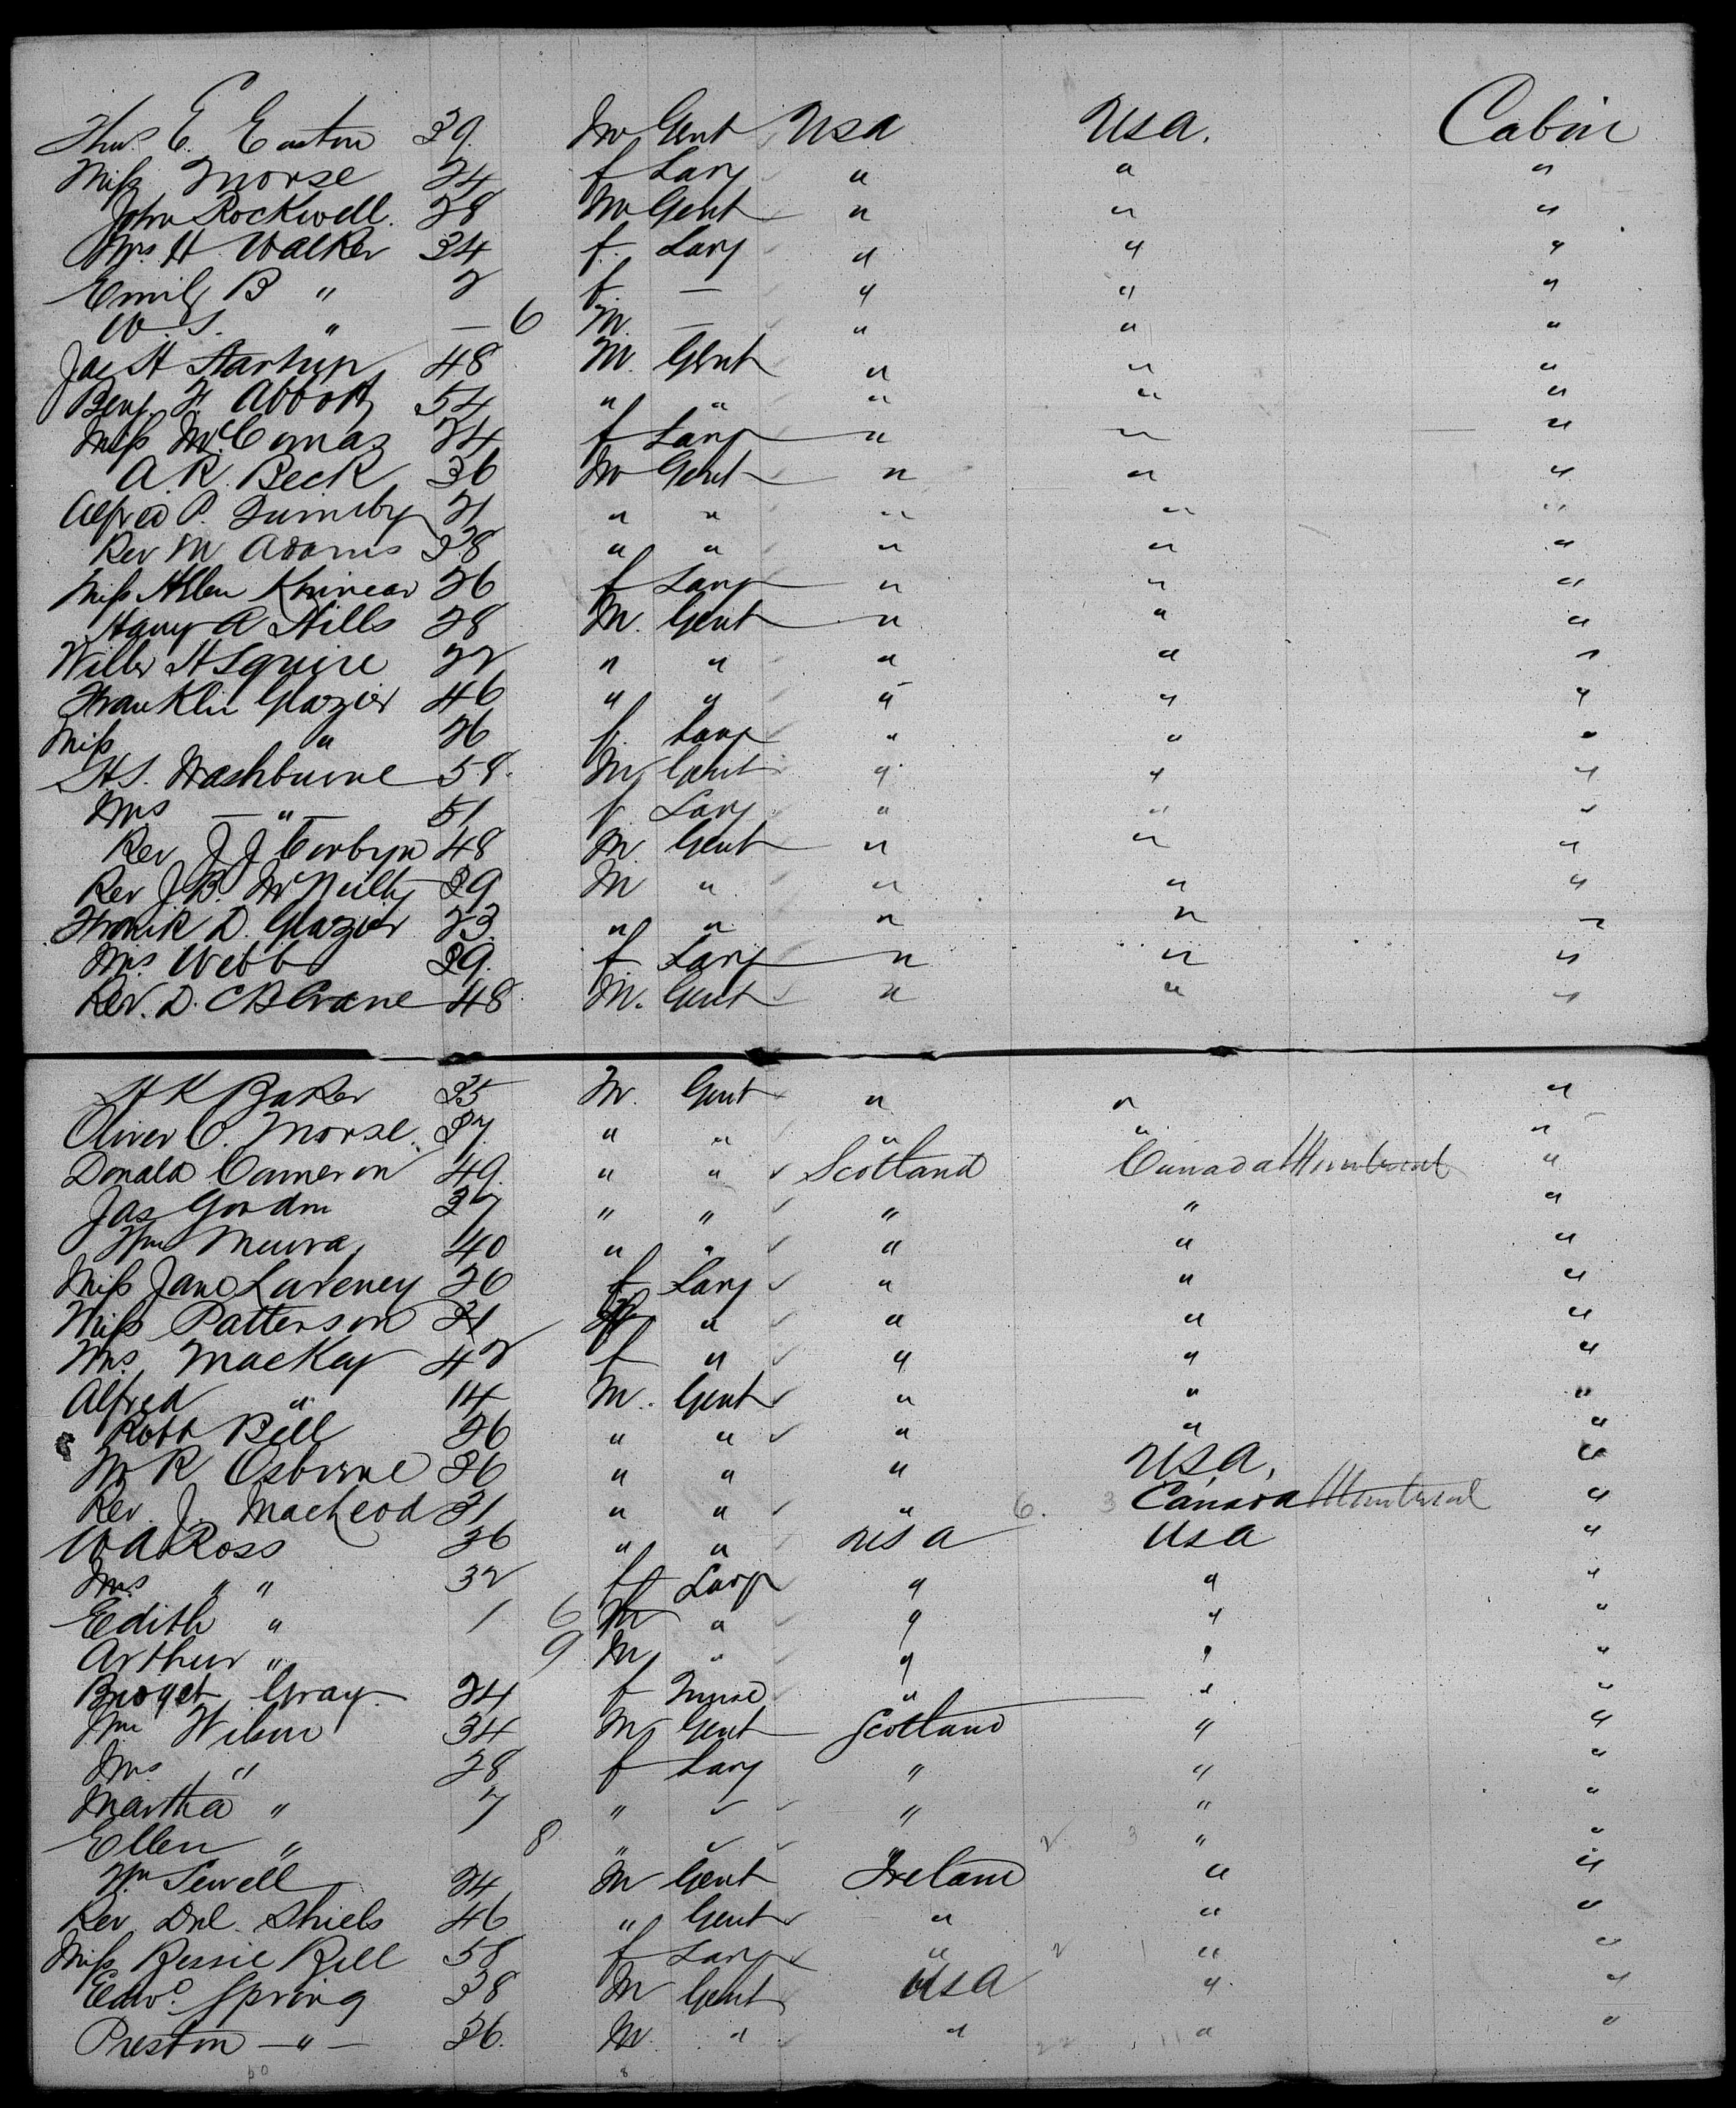 Thos. E. Easton 39. M Gent USA USA. Cabin
Miss Morse 24 f Lady " " "
John Rockwell. 28 M Gent " " "
Mrs H Walker 34 f. Lady " " "
Emily B " 2 f. — " " "
W. S. " — 6 M. — " " "
Jas H Startup 48 M. Gent " " "
Benj. F. Abbott 54 " " " " "
Miss McComas 24 f Lady " " "
A. R. Beck 36 M Gent " " "
Alfred P. 21 " " " " "
Rev M Adams 38 " " " " "
Miss Allen Kinnear 26 f Lady " " "
Harry A Hills 28 M. Gent " " "
H Squire 22 " " " " "
Franklin Glazier 46 " " " " "
Miss " 26 f. Lady " " "
H. S. Washburne 58. M Gent " " "
Mrs — " — 51 f. Lady " " "
Rev J J Corbyn 48 M. Gent " " "
Rev J. B. McNeilty 39 M " " " "
Frank D. Glazier 23 " " " " "
Mrs Webb 39. f Lady " " "
Rev. D. C B Crane 48 M. Gent " " "
H K Baker 35 M. Gent " " "
Oliver C. Morse. 37. " " " " "
Donald Cameron 49. " " Scotland Canada Montreal "
Jas Gordon 37 " " " " "
Wm 40 " " " " "
Miss Jane Laveney 26 f Lady " " "
Miss Patterson 21 " " " "
Mrs. MacKay 42 f " " " "
Alfred " 14 M. Gent " " "
Robt Bell 26 " " " " "
M R Osborne 26 " " " USA. "
Rev. J. MacLeod 31 " " " 6. 3 Canada Montreal "
W A Ross 36 " " USA USA "
Mrs " " 32 f Lady " " "
Edith " 1 6 " " " "
Arthur " 9 M " " " "
Bridget Gray. 24 f Nurse " " "
Wm Wilson 34 M Gent Scotland " "
Mrs. " 28 f Lady " " "
Martha " 7 " " " "
Ellen " 8 " " 2 3 " "
Wm Sewell 24 M Gent Ireland " "
Rev Dnl. Shiels 46 " Gent " " "
Miss Bessie Bell 58 f Lady " 2 1 " "
Edwd. Spring 38 M Gent USA " "
Preston — " — 36. M. " " 22 11 " "
50 8